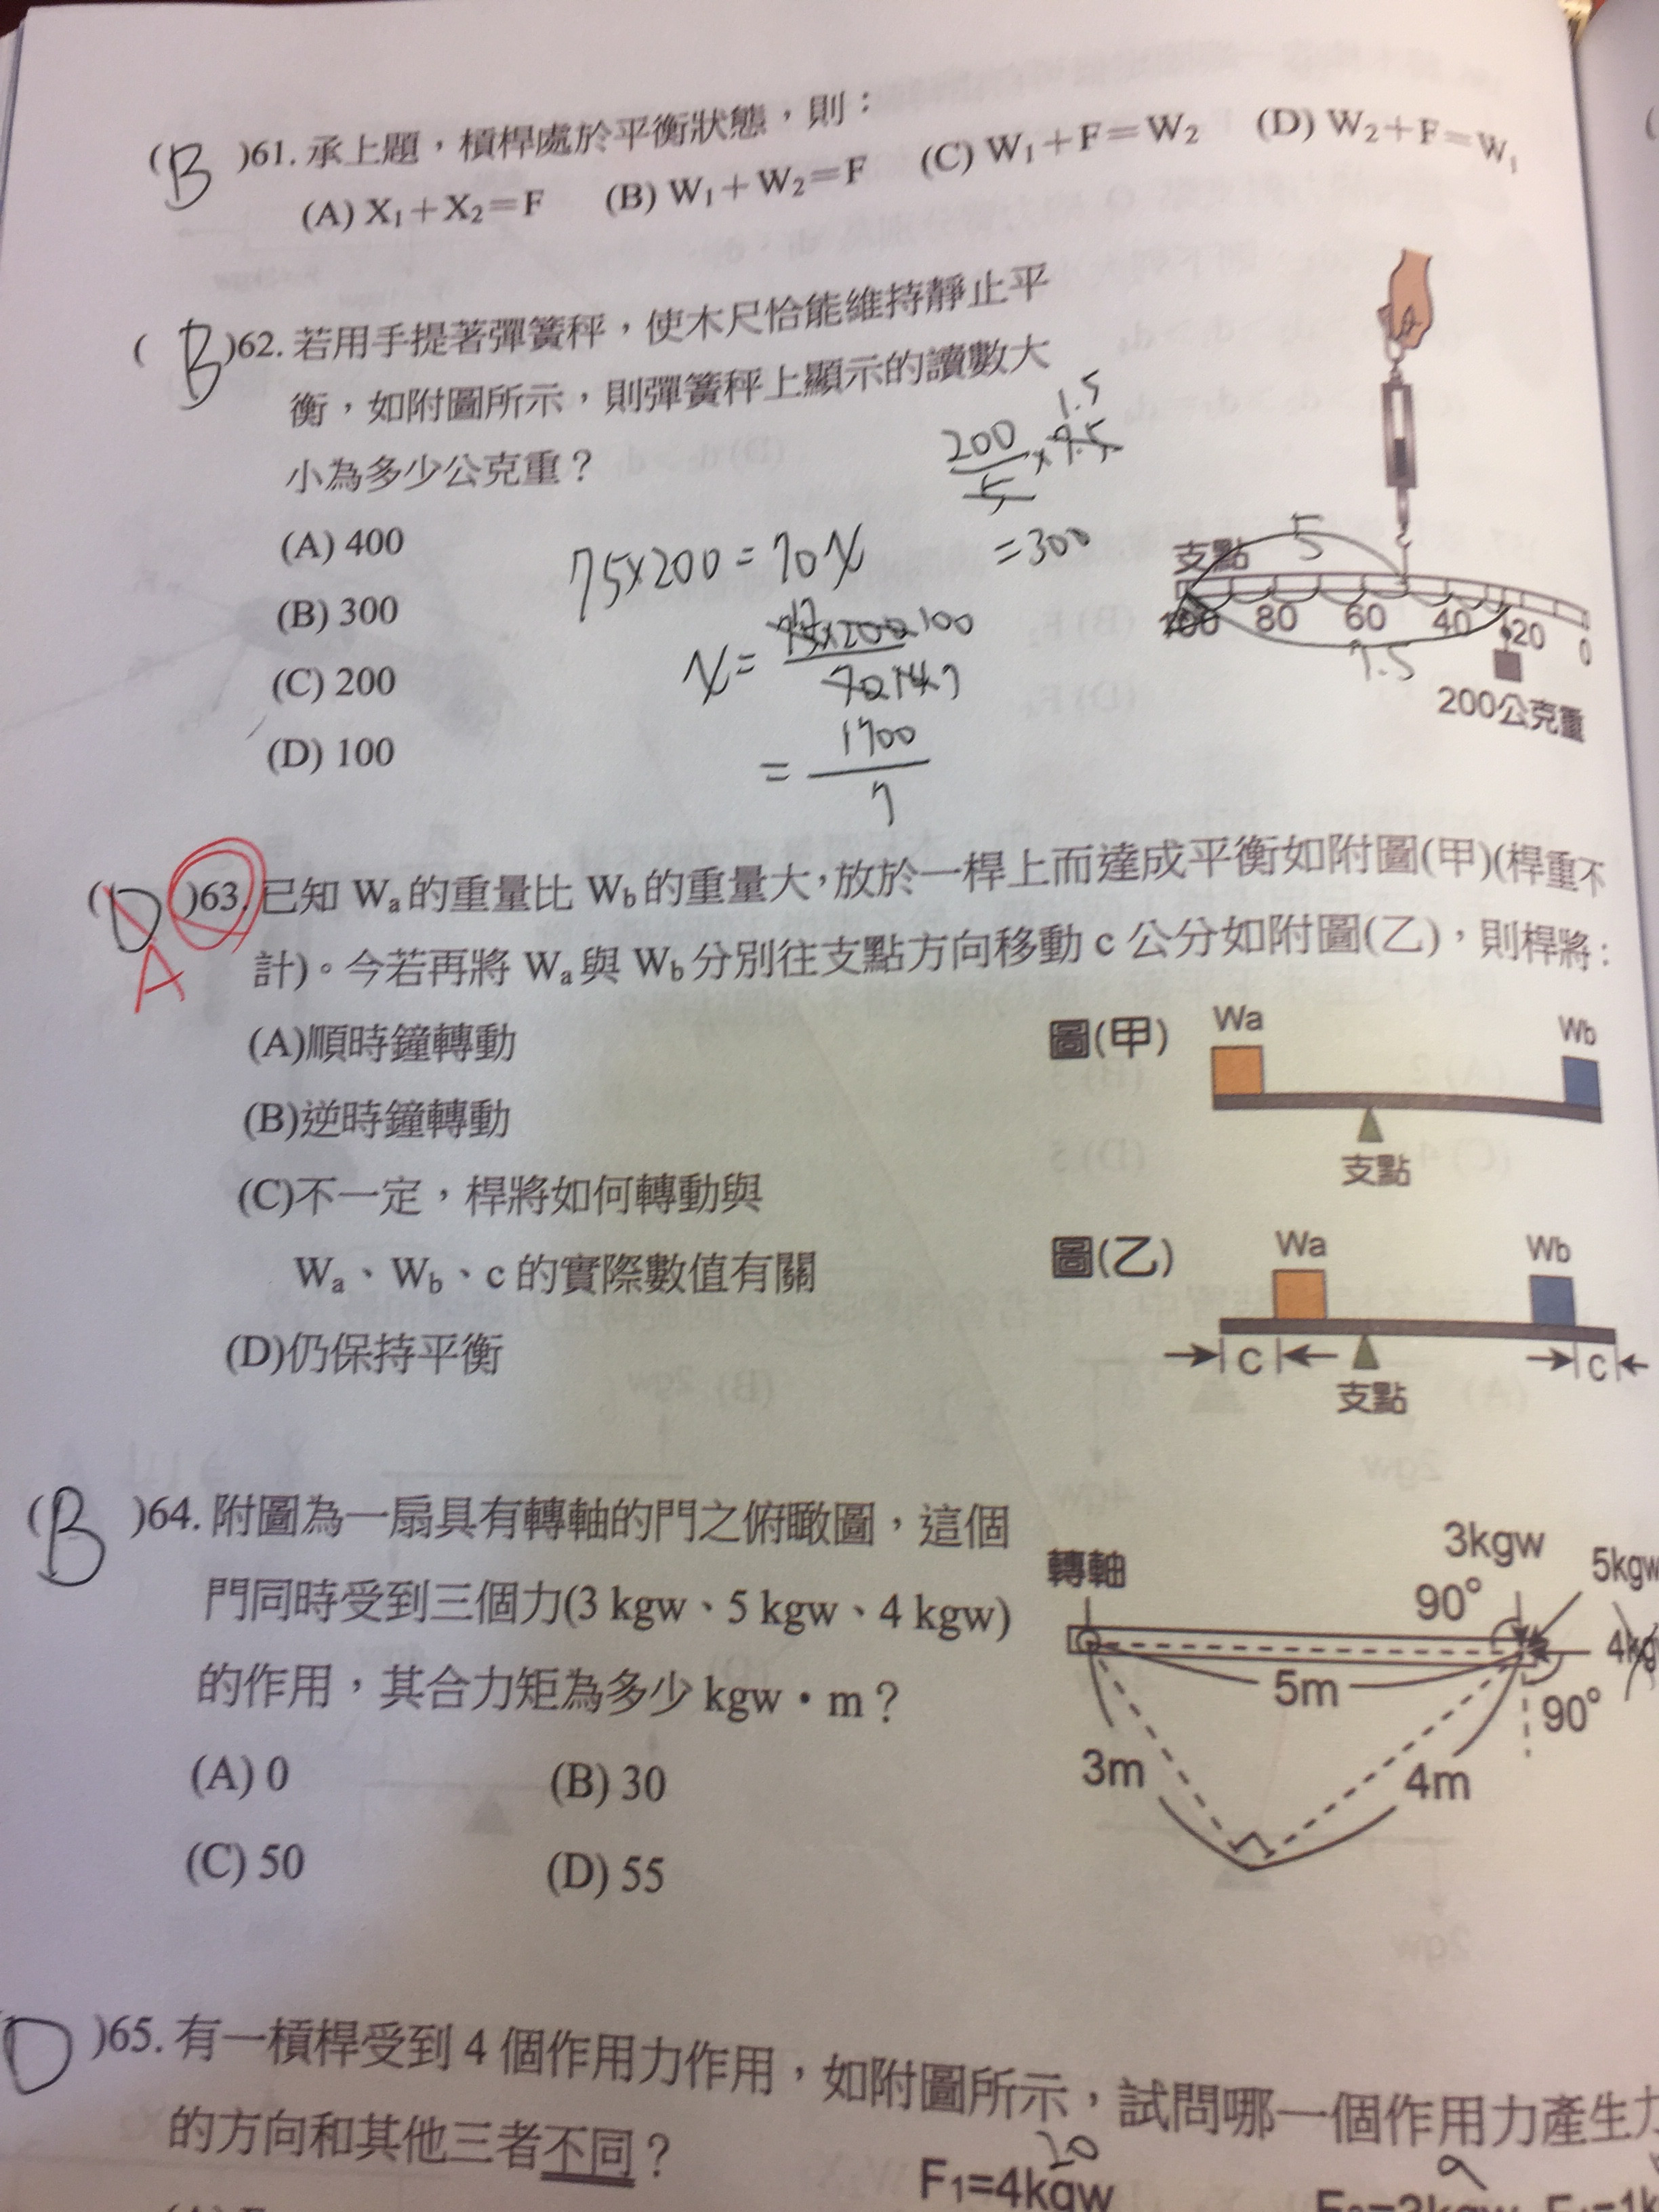 (B)61. 承上題，槓桿處於平衡狀態，則：
(A) X₁+X₂=F (B) W₁+W₂=F (C) W₁+F=W₂ (D) W₂+F=W₁
(B)62. 若用手提著彈簧秤，使木尺恰能維持靜止平
衡，如附圖所示，則彈簧秤上顯示的讀數大
小為多少公克重？
(A) 400
(B) 300
(C) 200
(D) 100
75×200=70x
x=
=1700/7
200/5 × 1.5
=300
5
支點
100 80 60 40 20 0
7.5
200公克重
(D)63. 已知 Wa 的重量比 Wb 的重量大，放於一桿上而達成平衡如附圖(甲)(桿重不
A
計)。今若再將 Wa 與 Wb 分別往支點方向移動 c 公分如附圖(乙)，則桿將：
(A)順時鐘轉動
(B)逆時鐘轉動
(C)不一定，桿將如何轉動與
Wa、Wb、c 的實際數值有關
(D)仍保持平衡
圖(甲) Wa Wb
支點
圖(乙) Wa Wb
C C
支點
(B)64. 附圖為一扇具有轉軸的門之俯瞰圖，這個
門同時受到三個力(3 kgw、5 kgw、4 kgw)
的作用，其合力矩為多少 kgw・m？
(A) 0 (B) 30
(C) 50 (D) 55
轉軸 3kgw 5kgw
90°
4kg
5m 90°
3m 4m
D)65. 有一槓桿受到 4 個作用力作用，如附圖所示，試問哪一個作用力產生力
的方向和其他三者不同？
20
9
F₁=4kgw